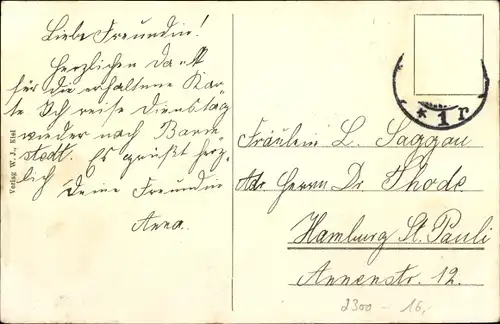 Liebe Freundin!
Herzlichen Dank
für die erhaltene Kar-
te Ich reise Dienstag
wieder nach
stedt. Es grüßt herz-
lich Deine Freundin
Anna.
Verlag W. J., Kiel
* 1 r
Fräulein L. Saggau
Adr. Herrn Dr Thode
Hamburg St. Pauli
Annenstr. 12.
2300 - 16,